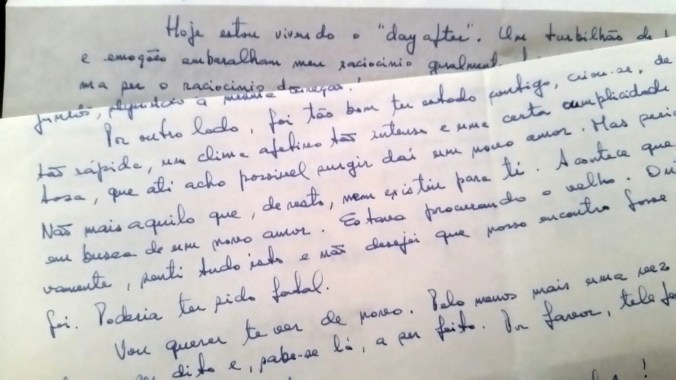 Hoje estou vivendo o "day after". Um turbilhão de
e emoção embaralham meu raciocínio geralment
ma ser o raciocínio
juntos, seguindo a mesma direção!
Por outro lado, foi tão bom ter estado contigo, criou-se, de
tão rápida, um clima afetivo tão intenso e uma certa cumplicidade
tosa, que até acho possível surgir daí um novo amor. Mas
Não mais aquilo que, de resto, nem existiu para ti. Acontece que
em busca de um novo amor. Estava procurando o velho.
vamente, senti tudo isto e não desejei que nosso encontro fosse
foi. Poderia ter sido fatal.
Vou querer te ver de novo. Pelo menos mais uma vez
dito e, sabe-se lá, a ser feito. Por favor, tele